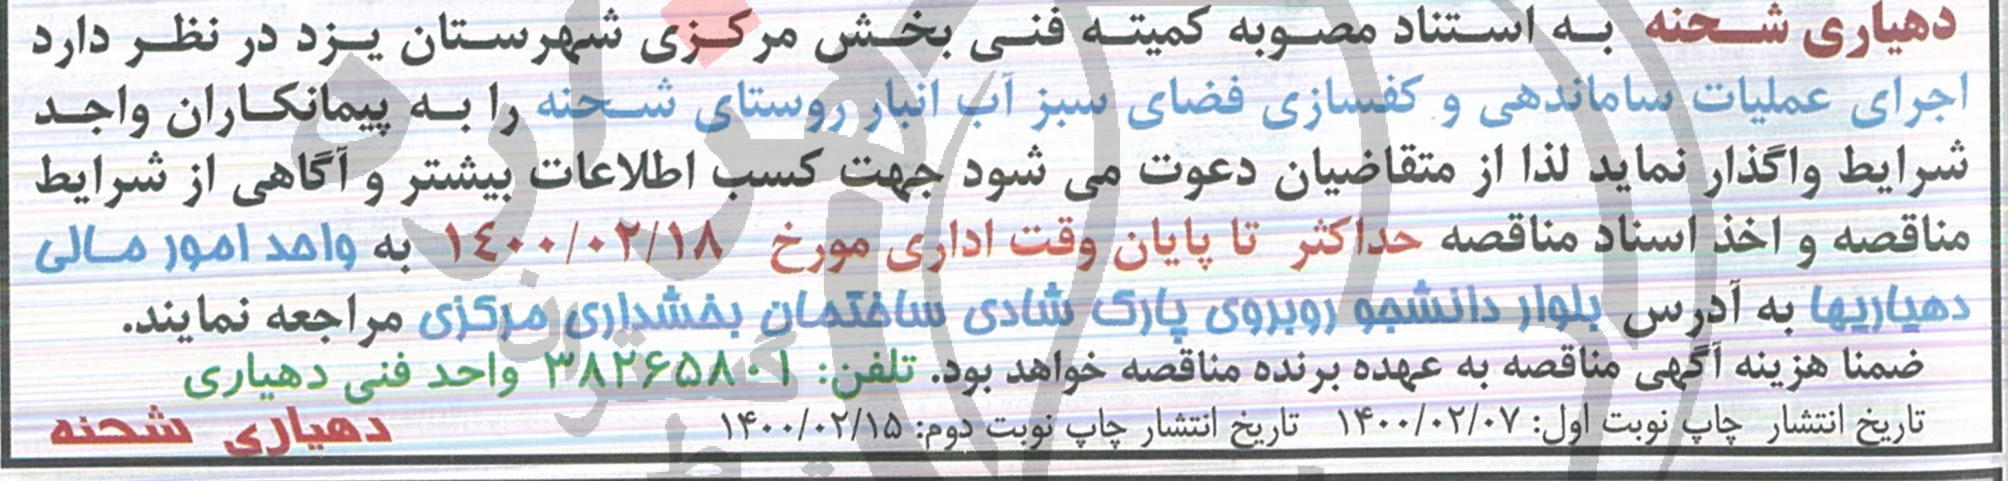 دهیاری شحنه به استناد مصوبه کمیته فنی بخش مرکزی شهرستان یزد در نظر دارد
اجرای عملیات ساماندهی و کفسازی فضای سبز آب انبار روستای شحنه را به پیمانکاران واجد
شرایط واگذار نماید لذا از متقاضیان دعوت می شود جهت کسب اطلاعات بیشتر و آگاهی از شرایط
مناقصه و اخذ اسناد مناقصه حداکثر تا پایان وقت اداری مورخ ۱٤۰۰/۰۲/۱۸ به واحد امور مالی
دهیاریها به آدرس بلوار دانشجو روبروی پارک شادی ساختمان بخشداری مرکزی مراجعه نمایند.
ضمنا هزینه آگهی مناقصه به عهده برنده مناقصه خواهد بود. تلفن: ۳۸۲۶۵۸۰۱ واحد فنی دهیاری
تاریخ انتشار چاپ نوبت اول: ۱۴۰۰/۰۲/۰۷ تاریخ انتشار چاپ نوبت دوم: ۱۴۰۰/۰۲/۱۵
دهیاری شحنه